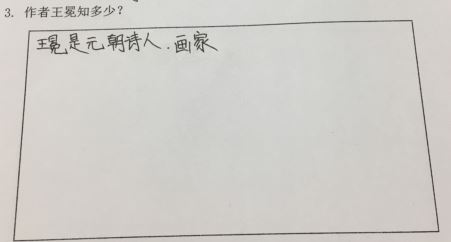 3. 作者王冕知多少？
王冕是元朝诗人.画家